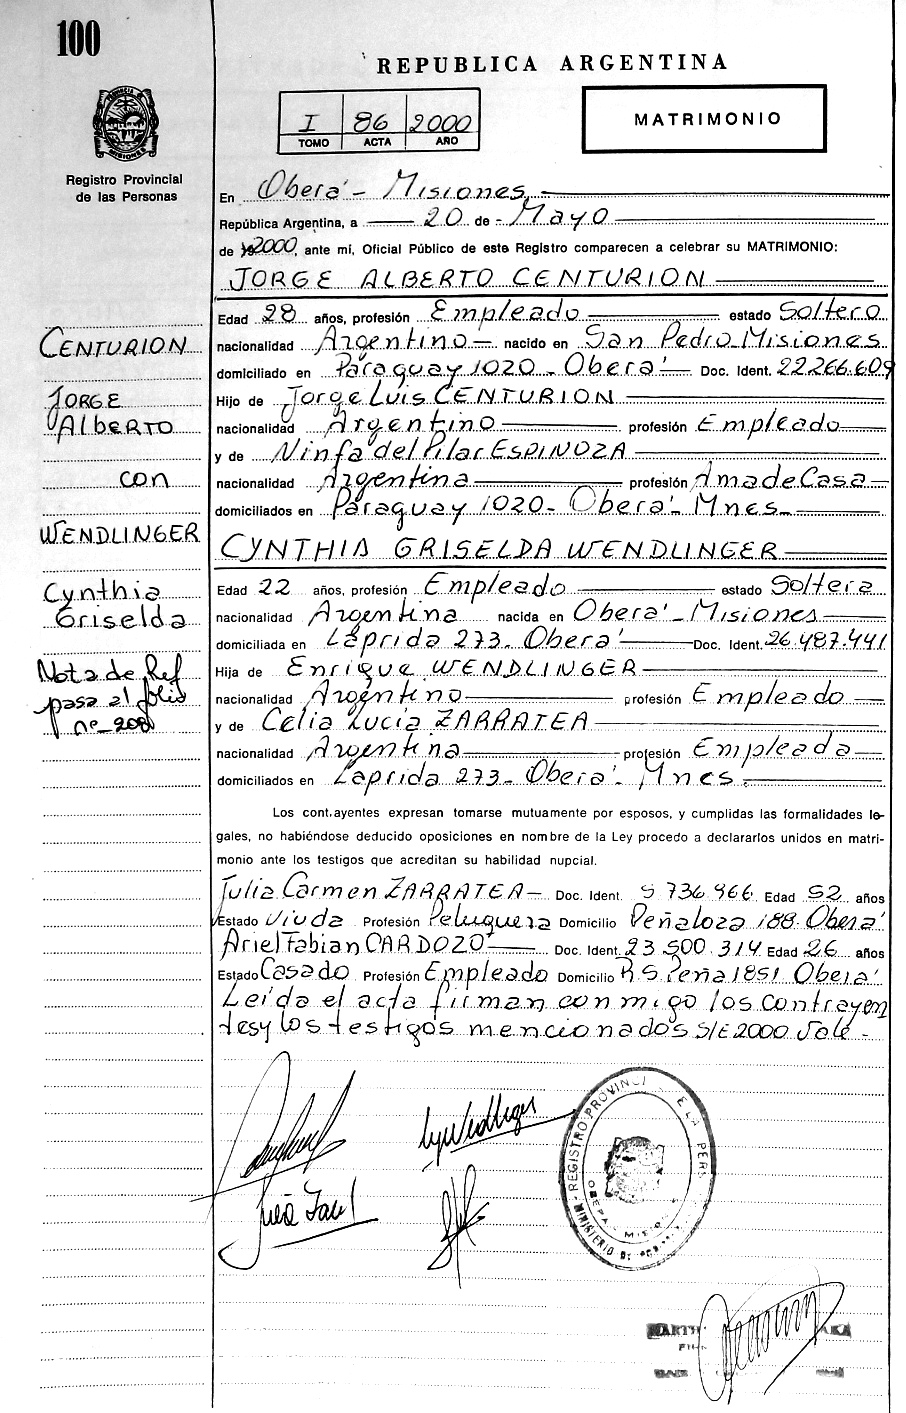 100
REPUBLICA ARGENTINA
I 86 2000
TOMO ACTA AÑO
MATRIMONIO
Registro Provincial
de las Personas
En Oberá - Misiones,
República Argentina, a 20 de Mayo
de 2000, ante mí, Oficial Público de este Registro comparecen a celebrar su MATRIMONIO:
JORGE ALBERTO CENTURION
Edad 28 años, profesión Empleado estado Soltero
nacionalidad Argentino nacido en San Pedro - Misiones
domiciliado en Paraguay 1020 - Oberá - Doc. Ident. 22.266.609
Hijo de Jorge Luis CENTURION
nacionalidad Argentino profesión Empleado
y de Ninfa del Pilar ESPINOZA
nacionalidad Argentina profesión Ama de Casa
domiciliados en Paraguay 1020 - Oberá - Mnes.
CYNTHIA GRISELDA WENDLINGER
Edad 22 años, profesión Empleado estado Soltera
nacionalidad Argentina nacida en Oberá - Misiones
domiciliada en Laprida 273 - Oberá Doc. Ident. 26.487.441
Hija de Enrique WENDLINGER
nacionalidad Argentino profesión Empleado
y de Celia Lucia ZARRATEA
nacionalidad Argentina profesión Empleada
domiciliados en Laprida 273 - Oberá - Mnes.
Los contrayentes expresan tomarse mutuamente por esposos, y cumplidas las formalidades le-
gales, no habiéndose deducido oposiciones en nombre de la Ley procedo a declararlos unidos en matri-
monio ante los testigos que acreditan su habilidad nupcial.
Julia Carmen ZARRATEA - Doc. Ident. 5 736 466 Edad 52 años
Estado Viuda Profesión Peluquera Domicilio Peñaloza 188 Oberá
Ariel Fabian CARDOZO Doc. Ident. 23 500 314 Edad 26 años
Estado Casado Profesión Empleado Domicilio R.S. Peña 1851 Oberá
Leída el acta firman conmigo los contrayen
tes y los testigos mencionados S/E 2000 Vale -
CENTURION
JORGE
Alberto
con
WENDLINGER
Cynthia
Griselda
Nota de Ref
pasa al folio
nº 200
REGISTRO PROVINCI E LA PERS
MINISTERIO DE